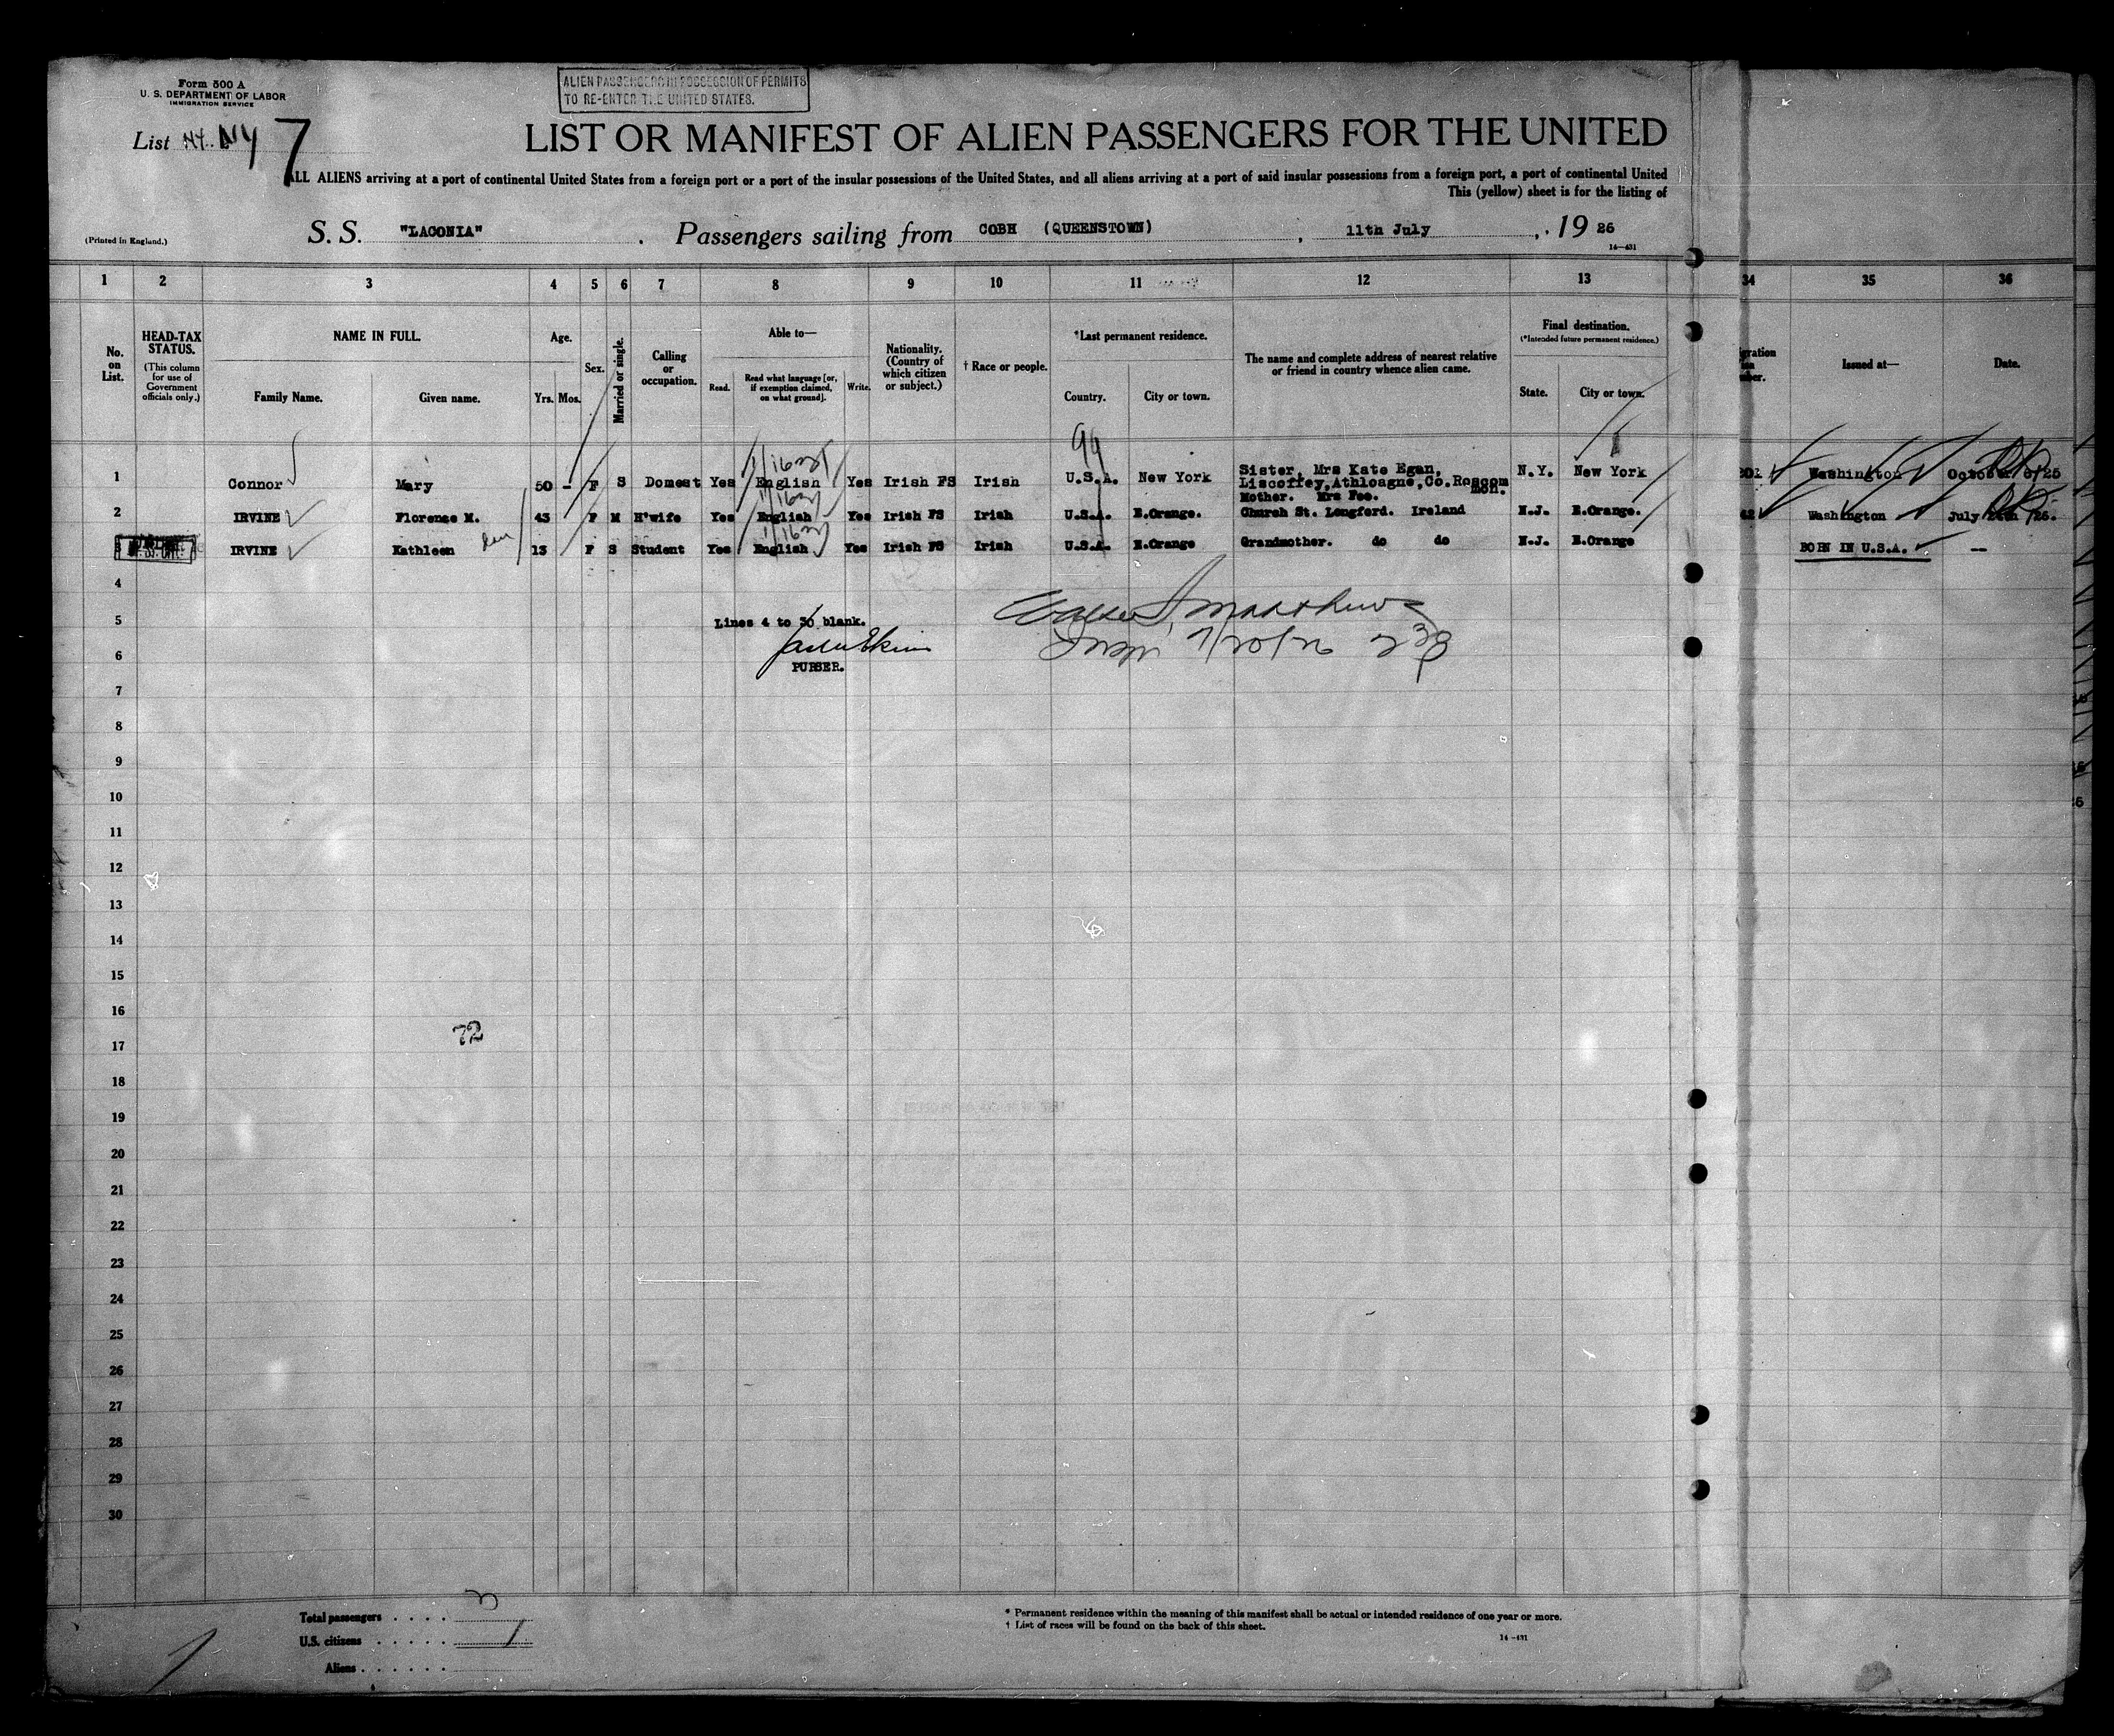 Form 500 A
U. S. DEPARTMENT OF LABOR
IMMIGRATION SERVICE
ALIEN PASSENGERS IN POSSESSION OF PERMITS
TO RE-ENTER THE UNITED STATES.
List NY. NY 7
LIST OR MANIFEST OF ALIEN PASSENGERS FOR THE UNITED
ALL ALIENS arriving at a port of continental United States from a foreign port or a port of the insular possessions of the United States, and all aliens arriving at a port of said insular possessions from a foreign port, a port of continental United
This (yellow) sheet is for the listing of
(Printed in England.)
S. S. "LACONIA" . Passengers sailing from COBH (QUEENSTOWN) , 11th July , 19 26
14-431
1 2 3 4 5 6 7 8 9 10 11 12 13 34 35 36
No. on List.
HEAD-TAX STATUS.
(This column for use of Government officials only.)
NAME IN FULL.
Family Name. Given name.
Age.
Yrs. Mos.
Sex.
Married or single.
Calling or occupation.
Able to—
Read. Read what language [or, if exemption claimed, on what ground]. Write.
Nationality. (Country of which citizen or subject.)
† Race or people.
*Last permanent residence.
Country. City or town.
The name and complete address of nearest relative or friend in country whence alien came.
Final destination.
(*Intended future permanent residence.)
State. City or town.
Issued at—
Date.
94
1 Connor Mary 50 - F S Domest Yes English Yes Irish FS Irish U.S.A. New York Sister, Mrs Kate Egan, Liscoffey, Athleagne, Co. Roscommon. N.Y. New York Washington October 8/25
2 IRVINE Florence M. 43 F M H'wife Yes English Yes Irish FS Irish U.S.A. E.Orange. Mother. Mrs Fee. Church St. Longford. Ireland N.J. E.Orange. Washington July
IRVINE Kathleen 13 F S Student Yes English Yes Irish FS Irish U.S.A. E.Orange Grandmother. do do N.J. E.Orange BORN IN U.S.A. —
4
5 Lines 4 to 30 blank. Walter J. Matthews
6 PURSER. Insp. 7/20/26
7
8
9
10
11
12
13
14
15
16
72
17
18
19
20
21
22
23
24
25
26
27
28
29
30
Total passengers . . . .
U.S. citizens . . . . . 1
Aliens . . . . . .
* Permanent residence within the meaning of this manifest shall be actual or intended residence of one year or more.
† List of races will be found on the back of this sheet.
14-431